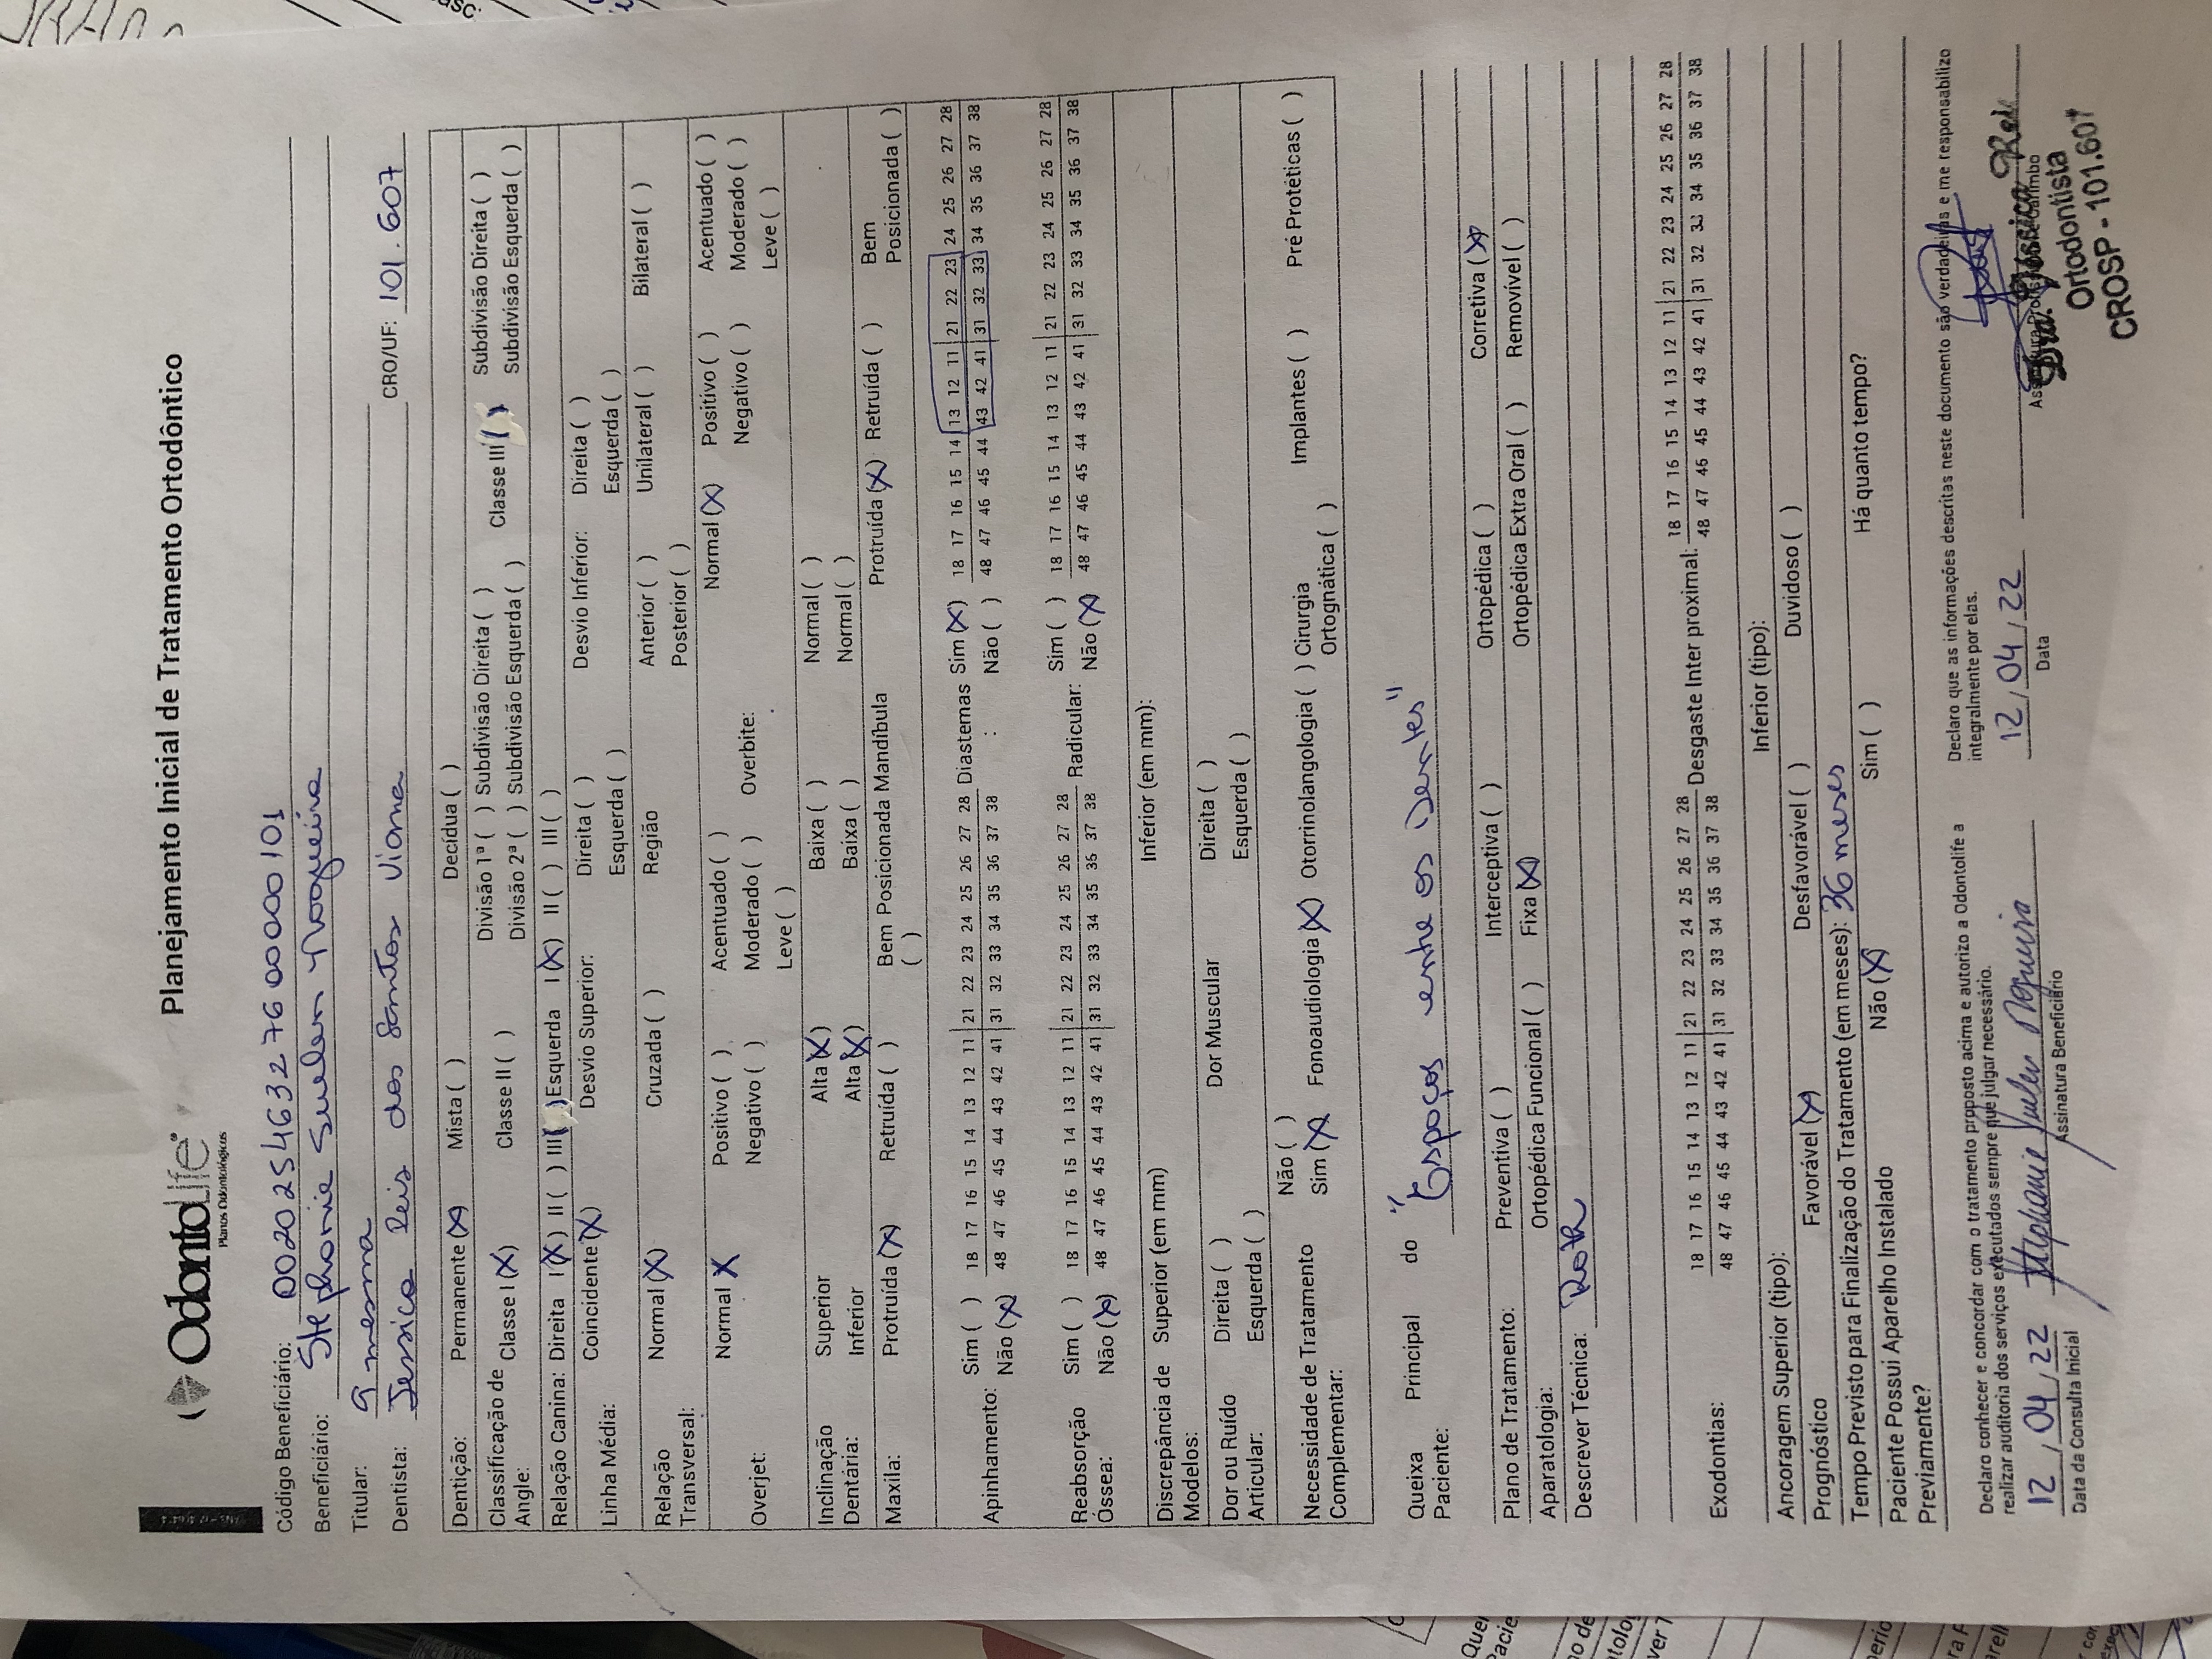 OdontoLife
Planos Odontológicos
Planejamento Inicial de Tratamento Ortodôntico
Código Beneficiário: 00202546327600000101
Beneficiário: Stephanie Suelen Nogueira
Titular: A mesma
Dentista: Jessica Reis dos Santos Viana CRO/UF: 101.607
Dentição: Permanente (X) Mista ( ) Decídua ( )
Classificação de Angle: Classe I (X) Classe II ( ) Divisão 1ª ( ) Subdivisão Direita ( ) Classe III ( ) Subdivisão Direita ( )
Divisão 2ª ( ) Subdivisão Esquerda ( ) Subdivisão Esquerda ( )
Relação Canina: Direita I (X) II ( ) III ( ) Esquerda I (X) II ( ) III ( )
Linha Média: Coincidente (X) Desvio Superior: Direita ( ) Desvio Inferior: Direita ( )
Esquerda ( ) Esquerda ( )
Relação Transversal: Normal (X) Cruzada ( ) Região Anterior ( ) Unilateral ( ) Bilateral ( )
Posterior ( )
Overjet: Normal X Positivo ( ) Acentuado ( ) Overbite: Normal (X) Positivo ( ) Acentuado ( )
Negativo ( ) Moderado ( ) Negativo ( ) Moderado ( )
Leve ( ) Leve ( )
Inclinação Dentária: Superior Alta (X) Baixa ( ) Normal ( )
Inferior Alta (X) Baixa ( ) Normal ( )
Maxila: Protruída (X) Retruída ( ) Bem Posicionada ( ) Mandíbula Protruída (X) Retruída ( ) Bem Posicionada ( )
Apinhamento: Sim ( ) 18 17 16 15 14 13 12 11 | 21 22 23 24 25 26 27 28 Diastemas : Sim (X) 18 17 16 15 14 13 12 11 | 21 22 23 24 25 26 27 28
Não (X) 48 47 46 45 44 43 42 41 | 31 32 33 34 35 36 37 38 Não ( ) 48 47 46 45 44 43 42 41 | 31 32 33 34 35 36 37 38
Reabsorção Óssea: Sim ( ) 18 17 16 15 14 13 12 11 | 21 22 23 24 25 26 27 28 Radicular: Sim ( ) 18 17 16 15 14 13 12 11 | 21 22 23 24 25 26 27 28
Não (X) 48 47 46 45 44 43 42 41 | 31 32 33 34 35 36 37 38 Não (X) 48 47 46 45 44 43 42 41 | 31 32 33 34 35 36 37 38
Discrepância de Modelos: Superior (em mm) Inferior (em mm):
Dor ou Ruído Articular: Direita ( ) Dor Muscular Direita ( )
Esquerda ( ) Esquerda ( )
Necessidade de Tratamento Complementar: Não ( )
Sim (X) Fonoaudiologia (X) Otorrinolangologia ( ) Cirurgia Ortognática ( ) Implantes ( ) Pré Protéticas ( )
Queixa Principal do Paciente: "Espaços entre os dentes"
Plano de Tratamento: Preventiva ( ) Interceptiva ( ) Ortopédica ( ) Corretiva (X)
Aparatologia: Ortopédica Funcional ( ) Fixa (X) Ortopédica Extra Oral ( ) Removível ( )
Descrever Técnica: Roth
Exodontias: 18 17 16 15 14 13 12 11 | 21 22 23 24 25 26 27 28 Desgaste Inter proximal: 18 17 16 15 14 13 12 11 | 21 22 23 24 25 26 27 28
48 47 46 45 44 43 42 41 | 31 32 33 34 35 36 37 38 48 47 46 45 44 43 42 41 | 31 32 33 34 35 36 37 38
Ancoragem Superior (tipo): Inferior (tipo):
Prognóstico Favorável (X) Desfavorável ( ) Duvidoso ( )
Tempo Previsto para Finalização do Tratamento (em meses): 36 meses
Paciente Possui Aparelho Instalado Previamente? Não (X) Sim ( ) Há quanto tempo?
Declaro conhecer e concordar com o tratamento proposto acima e autorizo a Odontolife a
realizar auditoria dos serviços executados sempre que julgar necessário.
Declaro que as informações descritas neste documento são verdadeiras e me responsabilizo
integralmente por elas.
12 / 04 / 22 Stephanie Suelen Nogueira 12 / 04 / 22
Data da Consulta Inicial Assinatura Beneficiário Data
Dra. Jessica Reis
Ortodontista
CROSP - 101.607